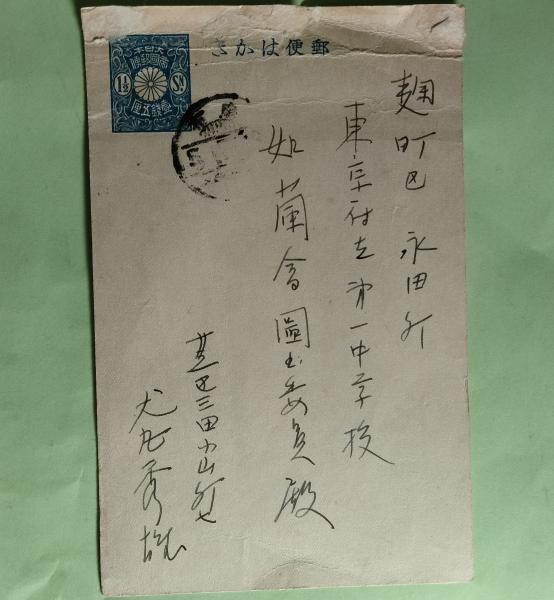 郵便はがき
大日本
帝國郵便
壹錢五厘
1½ Sn
麹町区 永田町
東京府立第一中学校
如蘭会圖書委員殿
芝区三田小山町七
犬丸秀雄